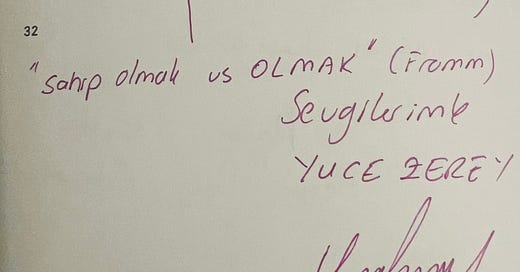 32
"Sahip olmak vs OLMAK" (Fromm)
Sevgilerimle
YUCE ZEREY